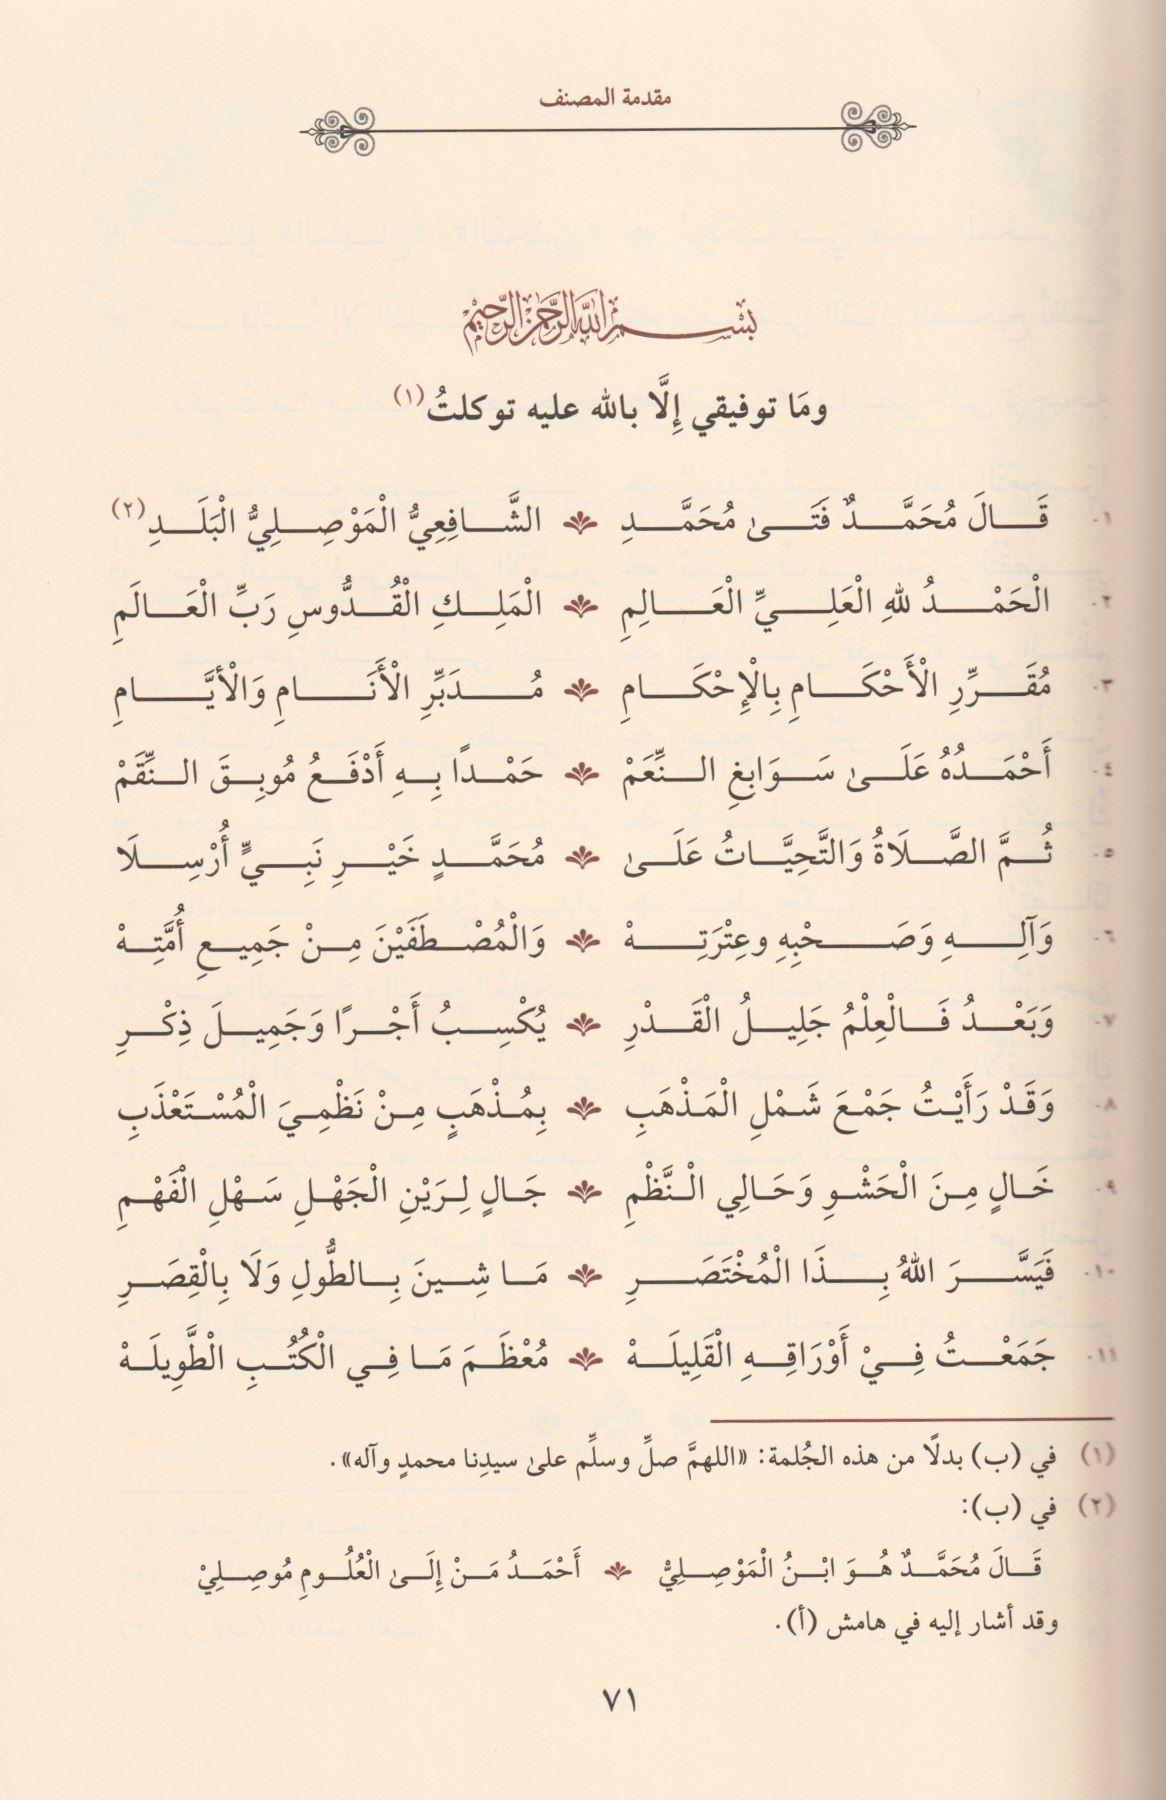 مقدمة المصنف
بسم الله الرحمن الرحيم
ومَا توفيقي إِلَّا بالله عليه توكلتُ(١)
٠١ قَالَ مُحَمَّدٌ فَتَى مُحَمَّدِ الشَّافِعِيُّ الْمَوْصِلِيُّ الْبَلَدِ(٢)
٠٢ الْحَمْدُ للهِ الْعَلِيِّ الْعَالِمِ الْمَلِكِ الْقُدُّوسِ رَبِّ الْعَالَمِ
٠٣ مُقَرِّرِ الْأَحْكَامِ بِالْإِحْكَامِ مُدَبِّرِ الْأَنَامِ وَالْأَيَّامِ
٠٤ أَحْمَدُهُ عَلَى سَوَابِغِ النِّعَمْ حَمْداً بِهِ أَدْفَعُ مُوبِقَ النِّقَمْ
٠٥ ثُمَّ الصَّلَاةُ وَالتَّحِيَّاتُ عَلَى مُحَمَّدٍ خَيْرِ نَبِيٍّ أُرْسِلَا
٠٦ وَآلِهِ وَصَحْبِهِ وعِتْرَتِهْ وَالْمُصْطَفَيْنَ مِنْ جَمِيعِ أُمَّتِهْ
٠٧ وَبَعْدُ فَالْعِلْمُ جَلِيلُ الْقَدْرِ يُكْسِبُ أَجْرًا وَجَمِيلَ ذِكْرِ
٠٨ وَقَدْ رَأَيْتُ جَمْعَ شَمْلِ الْمَذْهَبِ بِمُذْهَبٍ مِنْ نَظْمِيَ الْمُسْتَعْذَبِ
٠٩ خَالٍ مِنَ الْحَشْوِ وَحَالِي النَّظْمِ جَالٍ لِرَيْنِ الْجَهْلِ سَهْلِ الْفَهْمِ
٠١٠ فَيَسَّرَ اللهُ بِذَا الْمُخْتَصَرِ مَا شِينَ بِالطُّولِ وَلَا بِالْقِصَرِ
٠١١ جَمَعْتُ فِيْ أَوْرَاقِهِ الْقَلِيلَهْ مُعْظَمَ مَا فِي الْكُتُبِ الْطَّوِيلَهْ
(١) في (ب) بدلًا من هذه الجُلمة: «اللهمَّ صلِّ وسلِّم على سيدِنا محمدٍ وآله».
(٢) في (ب):
قَالَ مُحَمَّدٌ هُوَ ابْنُ الْمَوْصِلِيّْ أَحْمَدُ مَنْ إِلَى الْعُلُومِ مُوصِلِيْ
وقد أشار إليه في هامش (أ).
٧١